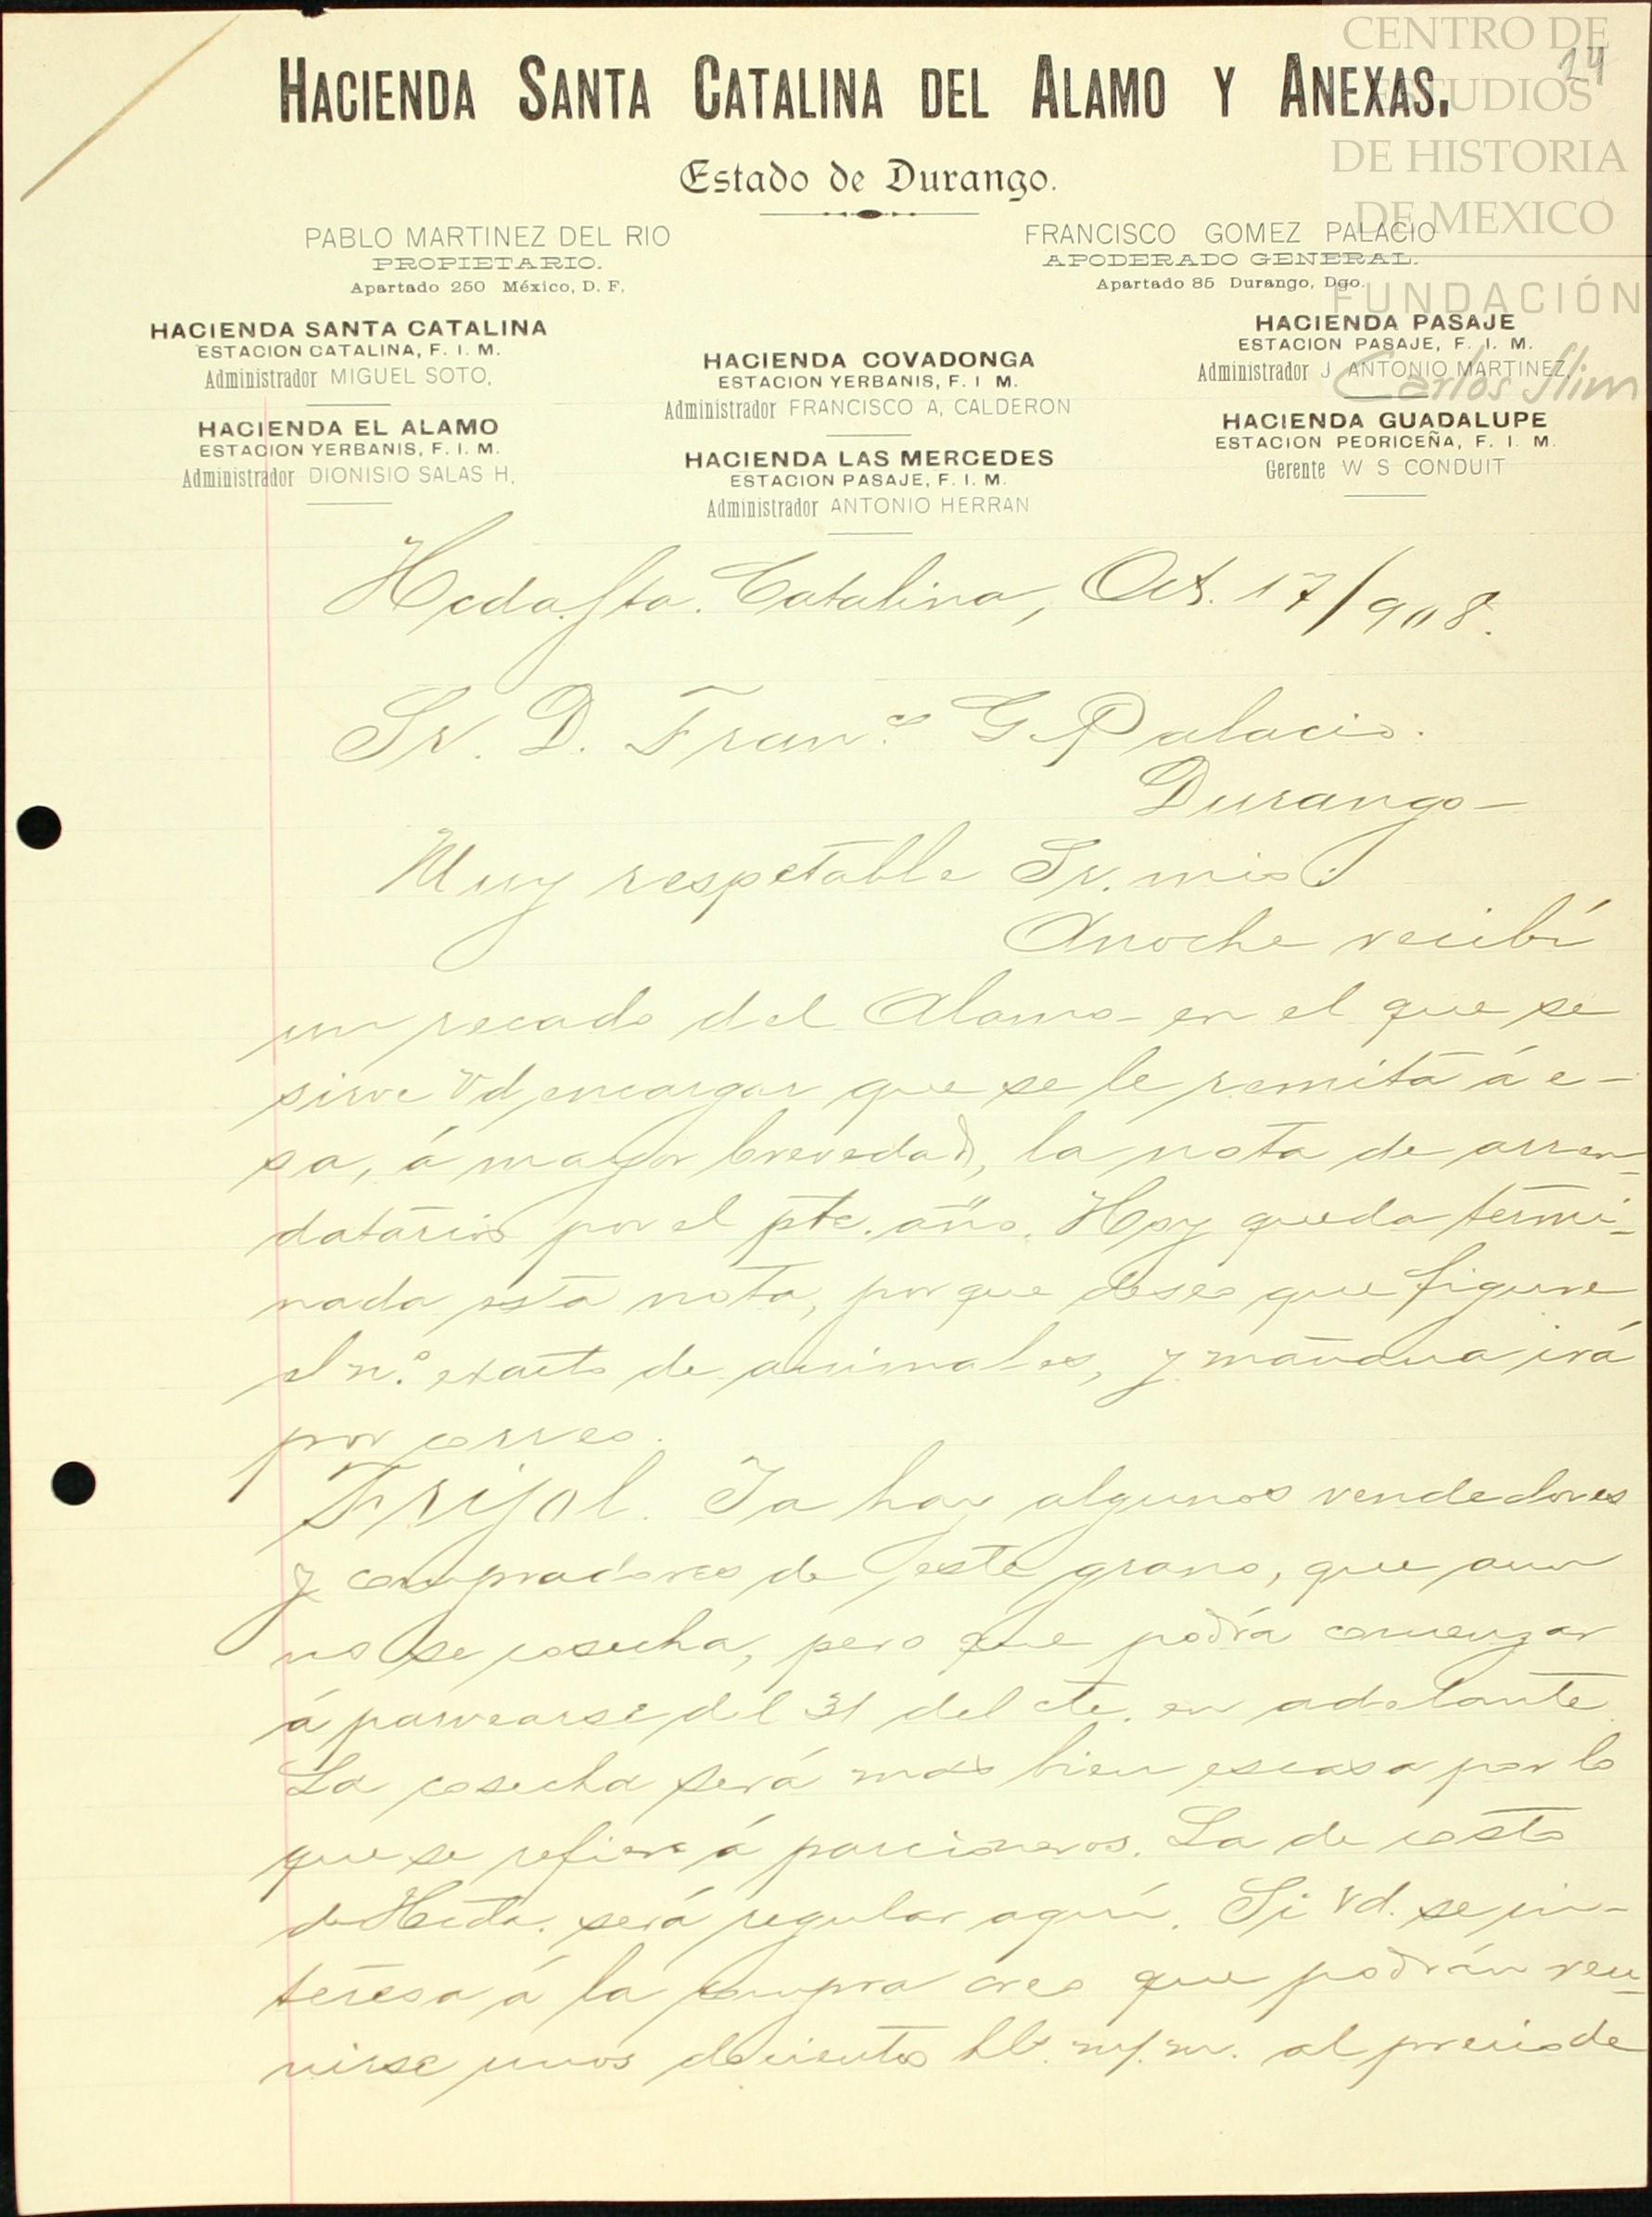 CENTRO DE
ESTUDIOS
DE HISTORIA
DE MEXICO
FUNDACIÓN
Carlos Slim
24
HACIENDA SANTA CATALINA DEL ALAMO Y ANEXAS.
Estado de Durango.
PABLO MARTINEZ DEL RIO
PROPIETARIO.
Apartado 250 México, D. F.
FRANCISCO GOMEZ PALACIO
APODERADO GENERAL.
Apartado 85 Durango, Dgo.
HACIENDA SANTA CATALINA
ESTACION CATALINA, F. I. M.
Administrador MIGUEL SOTO,
HACIENDA EL ALAMO
ESTACION YERBANIS, F. I. M.
Administrador DIONISIO SALAS H,
HACIENDA COVADONGA
ESTACION YERBANIS, F. I M.
Administrador FRANCISCO A, CALDERON
HACIENDA LAS MERCEDES
ESTACION PASAJE, F. I. M.
Administrador ANTONIO HERRAN
HACIENDA PASAJE
ESTACION PASAJE, F. I. M.
Administrador J. ANTONIO MARTINEZ,
HACIENDA GUADALUPE
ESTACION PEDRICEÑA, F. I. M.
Gerente W S CONDUIT
Hcda. Sta. Catalina, Oct. 17/908.
Sr. D. Fran.co G. Palacio.
Durango-
Muy respetable Sr. mio:
Anoche recibí
un recado del Alamo en el que se
sirve Vd, encargar que se le remita á e-
sa, á mayor brevedad, la nota de arren-
datarios por el pte. año. Hoy queda termi-
nada esta nota, porque deseo que figure
el n.o exacto de animales, y mañana irá
por correo.
Frijol. Ya hay algunos vendedores
y compradores de este grano, que aun
no se cosecha, pero que podrá comenzar
á parvearse del 31 del cte. en adelante.
La cosecha será más bien escasa por lo
que se refiere á parcioneros. La de costo
de Hcda. será regular aquí. Si Vd. se in-
teresa á la compra creo que podrán reu-
nirse unos docientos hlt. m/m. al precio de